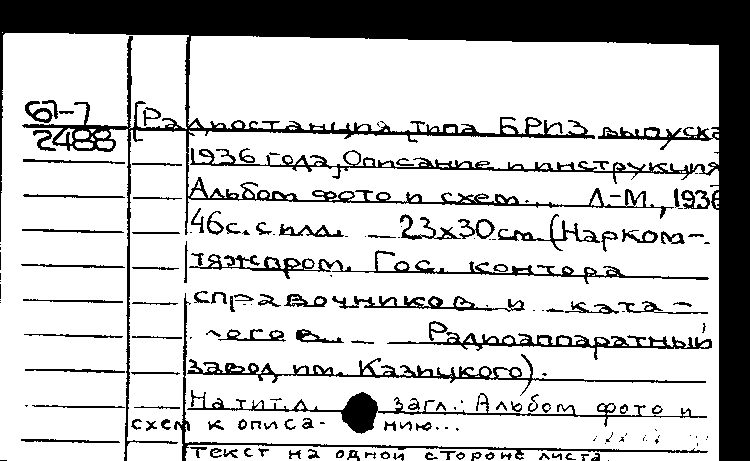 61-7
2488
[Радиостанция типа БРИЗ выпуска
1936 года, Описание и инструкция
Альбом фото и схем... Л.-М., 1936
46с. с илл. 23х30см (Нарком-
тяжпром. Гос. контора
справочников и ката-
логов. Радиоаппаратный
завод им. Казицкого).
На тит.л. загл.: Альбом фото и
схем к описа- нию...
Текст на одной стороне листа.